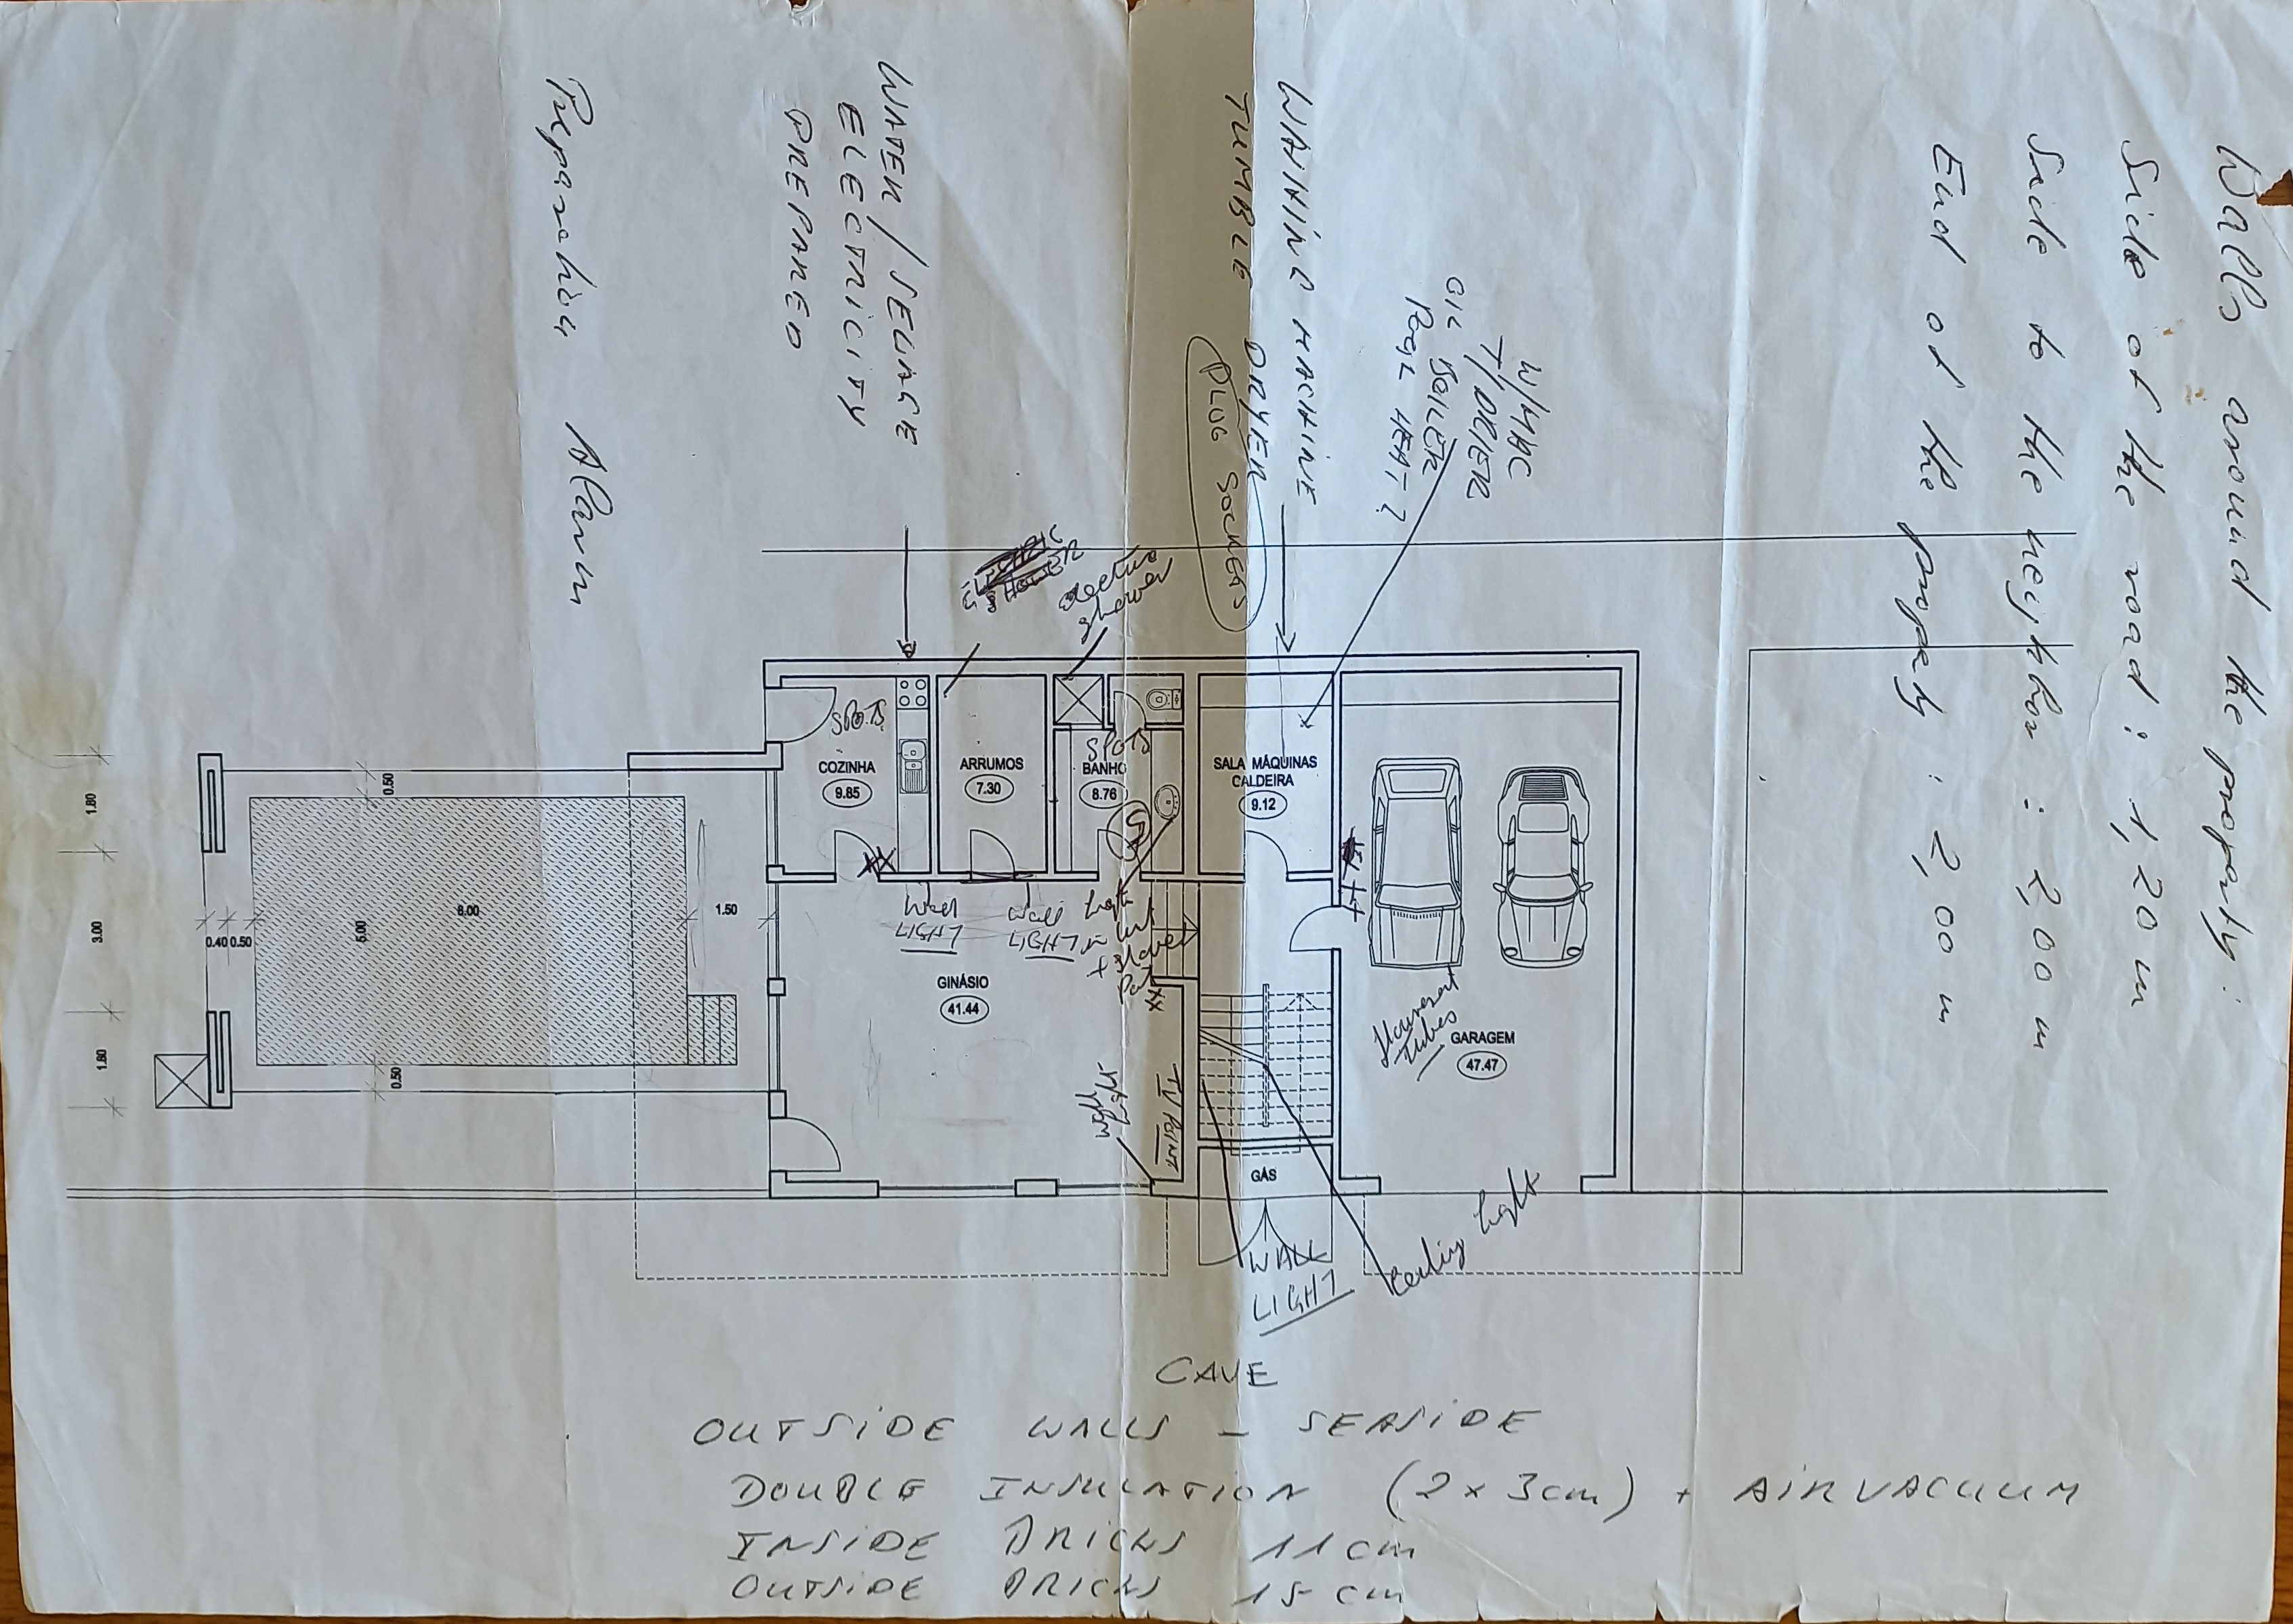 Walls around the property :
Side of the road : 1,20 m
Side to the neighbor : 2,00 m
End of the property : 2,00 m
W/MAC
T/DRIER
OIL BOILER
POOL HEAT ?
WASHING MACHINE
TUMBLE DRYER
PLUG SOCKETS
WATER / SEWAGE
ELECTRICITY
PREPARED
Preparation Alarm
electric
shower
SPOTS
COZINHA
9.85
ARRUMOS
7.30
SPOTS
BANHO
8.76
SALA MÁQUINAS
CALDEIRA
9.12
XX
Wall
LIGHT
Wall
LIGHT
Light
+ shaver
XX
GINÁSIO
41.44
TV POINT
Wall
Light
Tubes
GARAGEM
47.47
GÁS
WALL
LIGHT
Ceiling Light
1.80
3.00
1.80
0.50
0.40
0.50
5.00
6.00
1.50
0.50
CAVE
OUTSIDE WALLS - SEASIDE
DOUBLE INSULATION (2 x 3cm) + AIRVACUUM
INSIDE BRICKS 11 cm
OUTSIDE BRICKS 15 cm